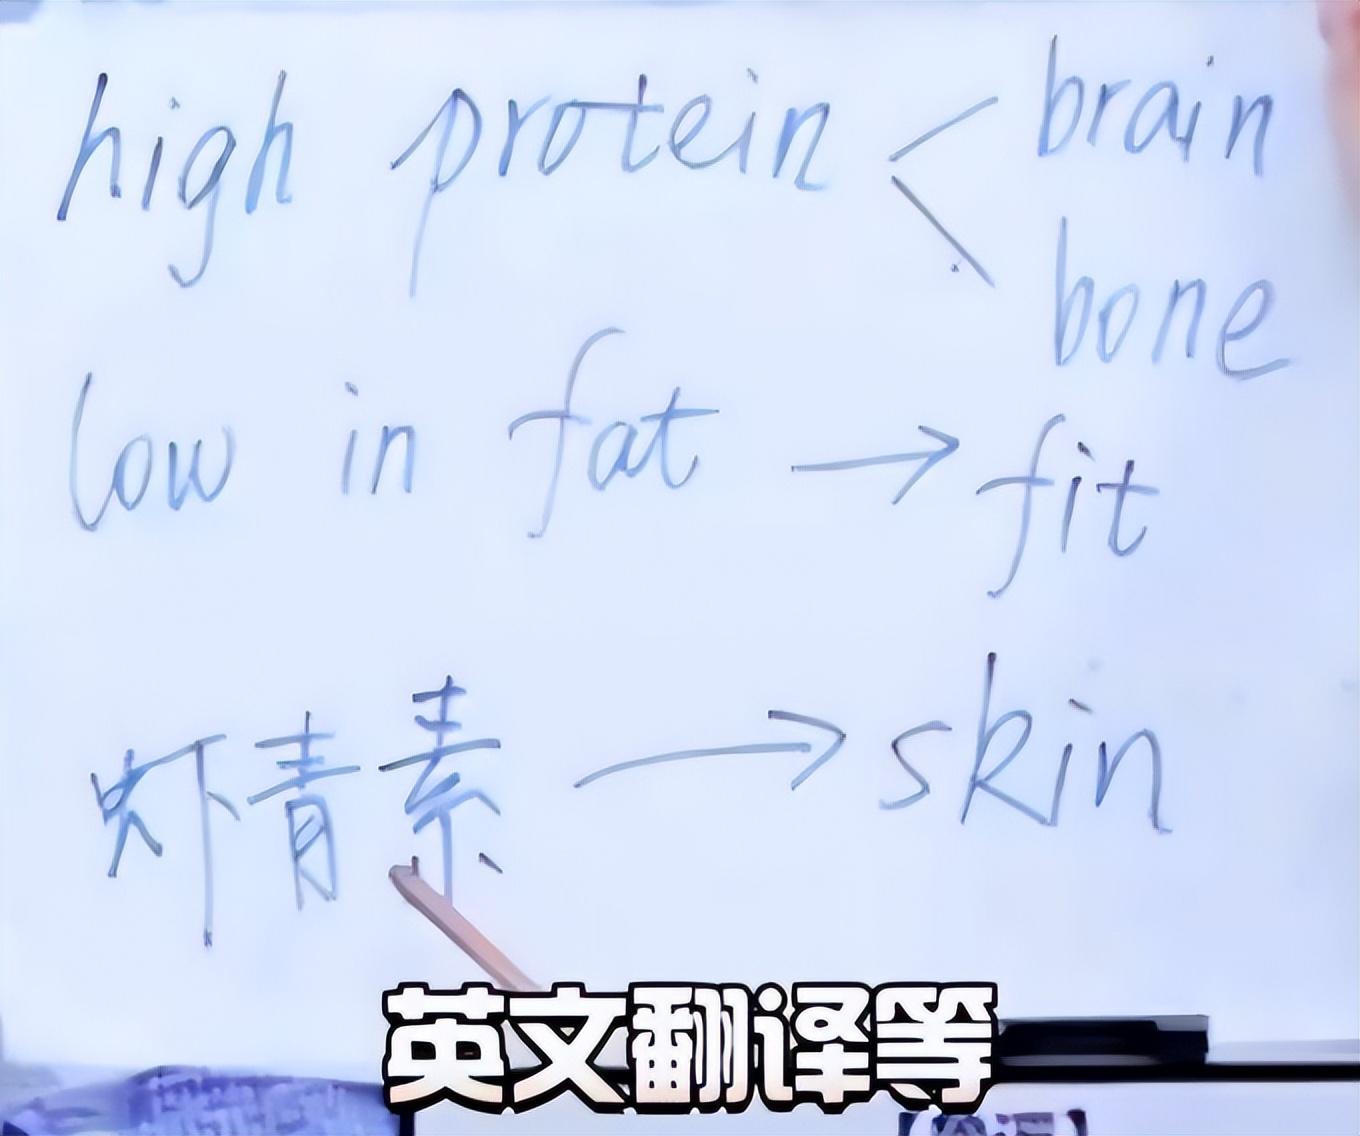 high protein < brain
bone
low in fat → fit
虾青素 → skin
英文翻译等